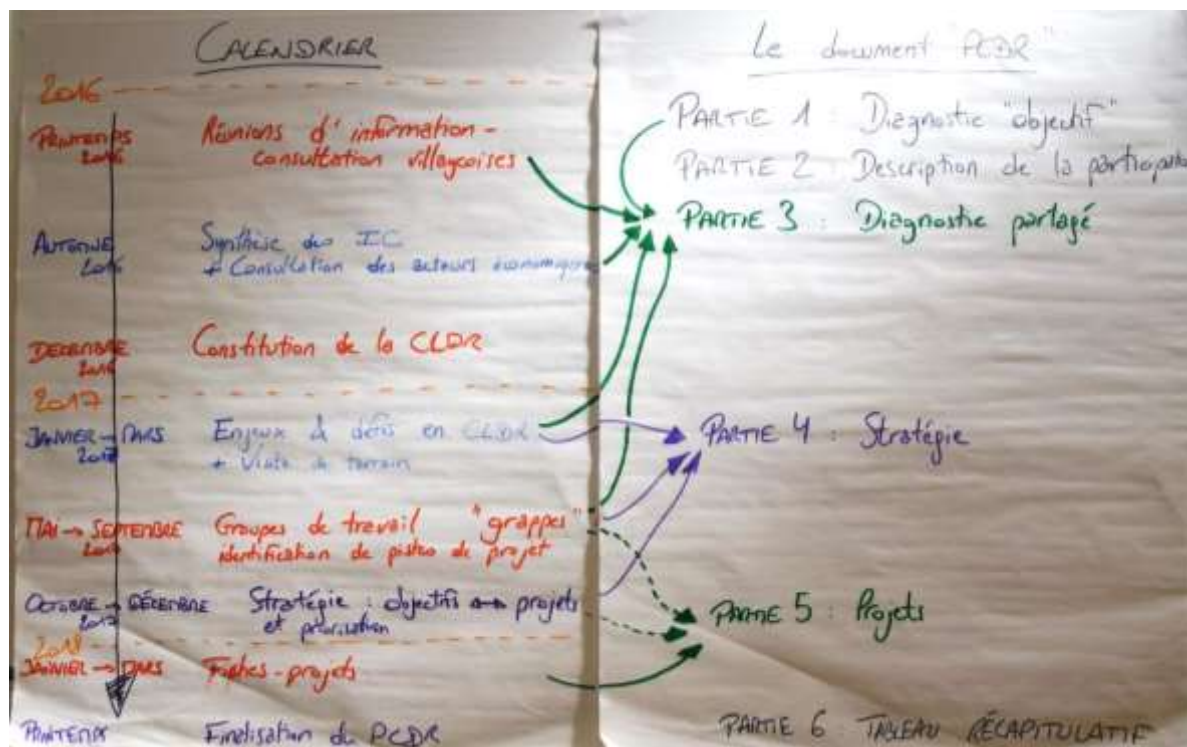 CALENDRIER
2016
PRINTEMPS 2016 Réunions d'information-
consultation villageoises
AUTOMNE 2016 Synthèse des IC
+ Consultation des acteurs économiques
DECEMBRE 2016 Constitution de la CLDR
2017
JANVIER → MARS 2017 Enjeux & défis en CLDR
+ Visite de terrain
MAI → SEPTEMBRE 2017 Groupes de travail "grappes"
identification de pistes de projet
OCTOBRE → DÉCEMBRE 2017 Stratégie : objectifs ↔ projets
et priorisation
2018
JANVIER → MARS Fiches-projets
PRINTEMPS Finalisation du PCDR
Le document "PCDR"
PARTIE 1 : Diagnostic "objectif"
PARTIE 2 : Description de la participation
PARTIE 3 : Diagnostic partagé
PARTIE 4 : Stratégie
PARTIE 5 : Projets
PARTIE 6 : TABLEAU RÉCAPITULATIF